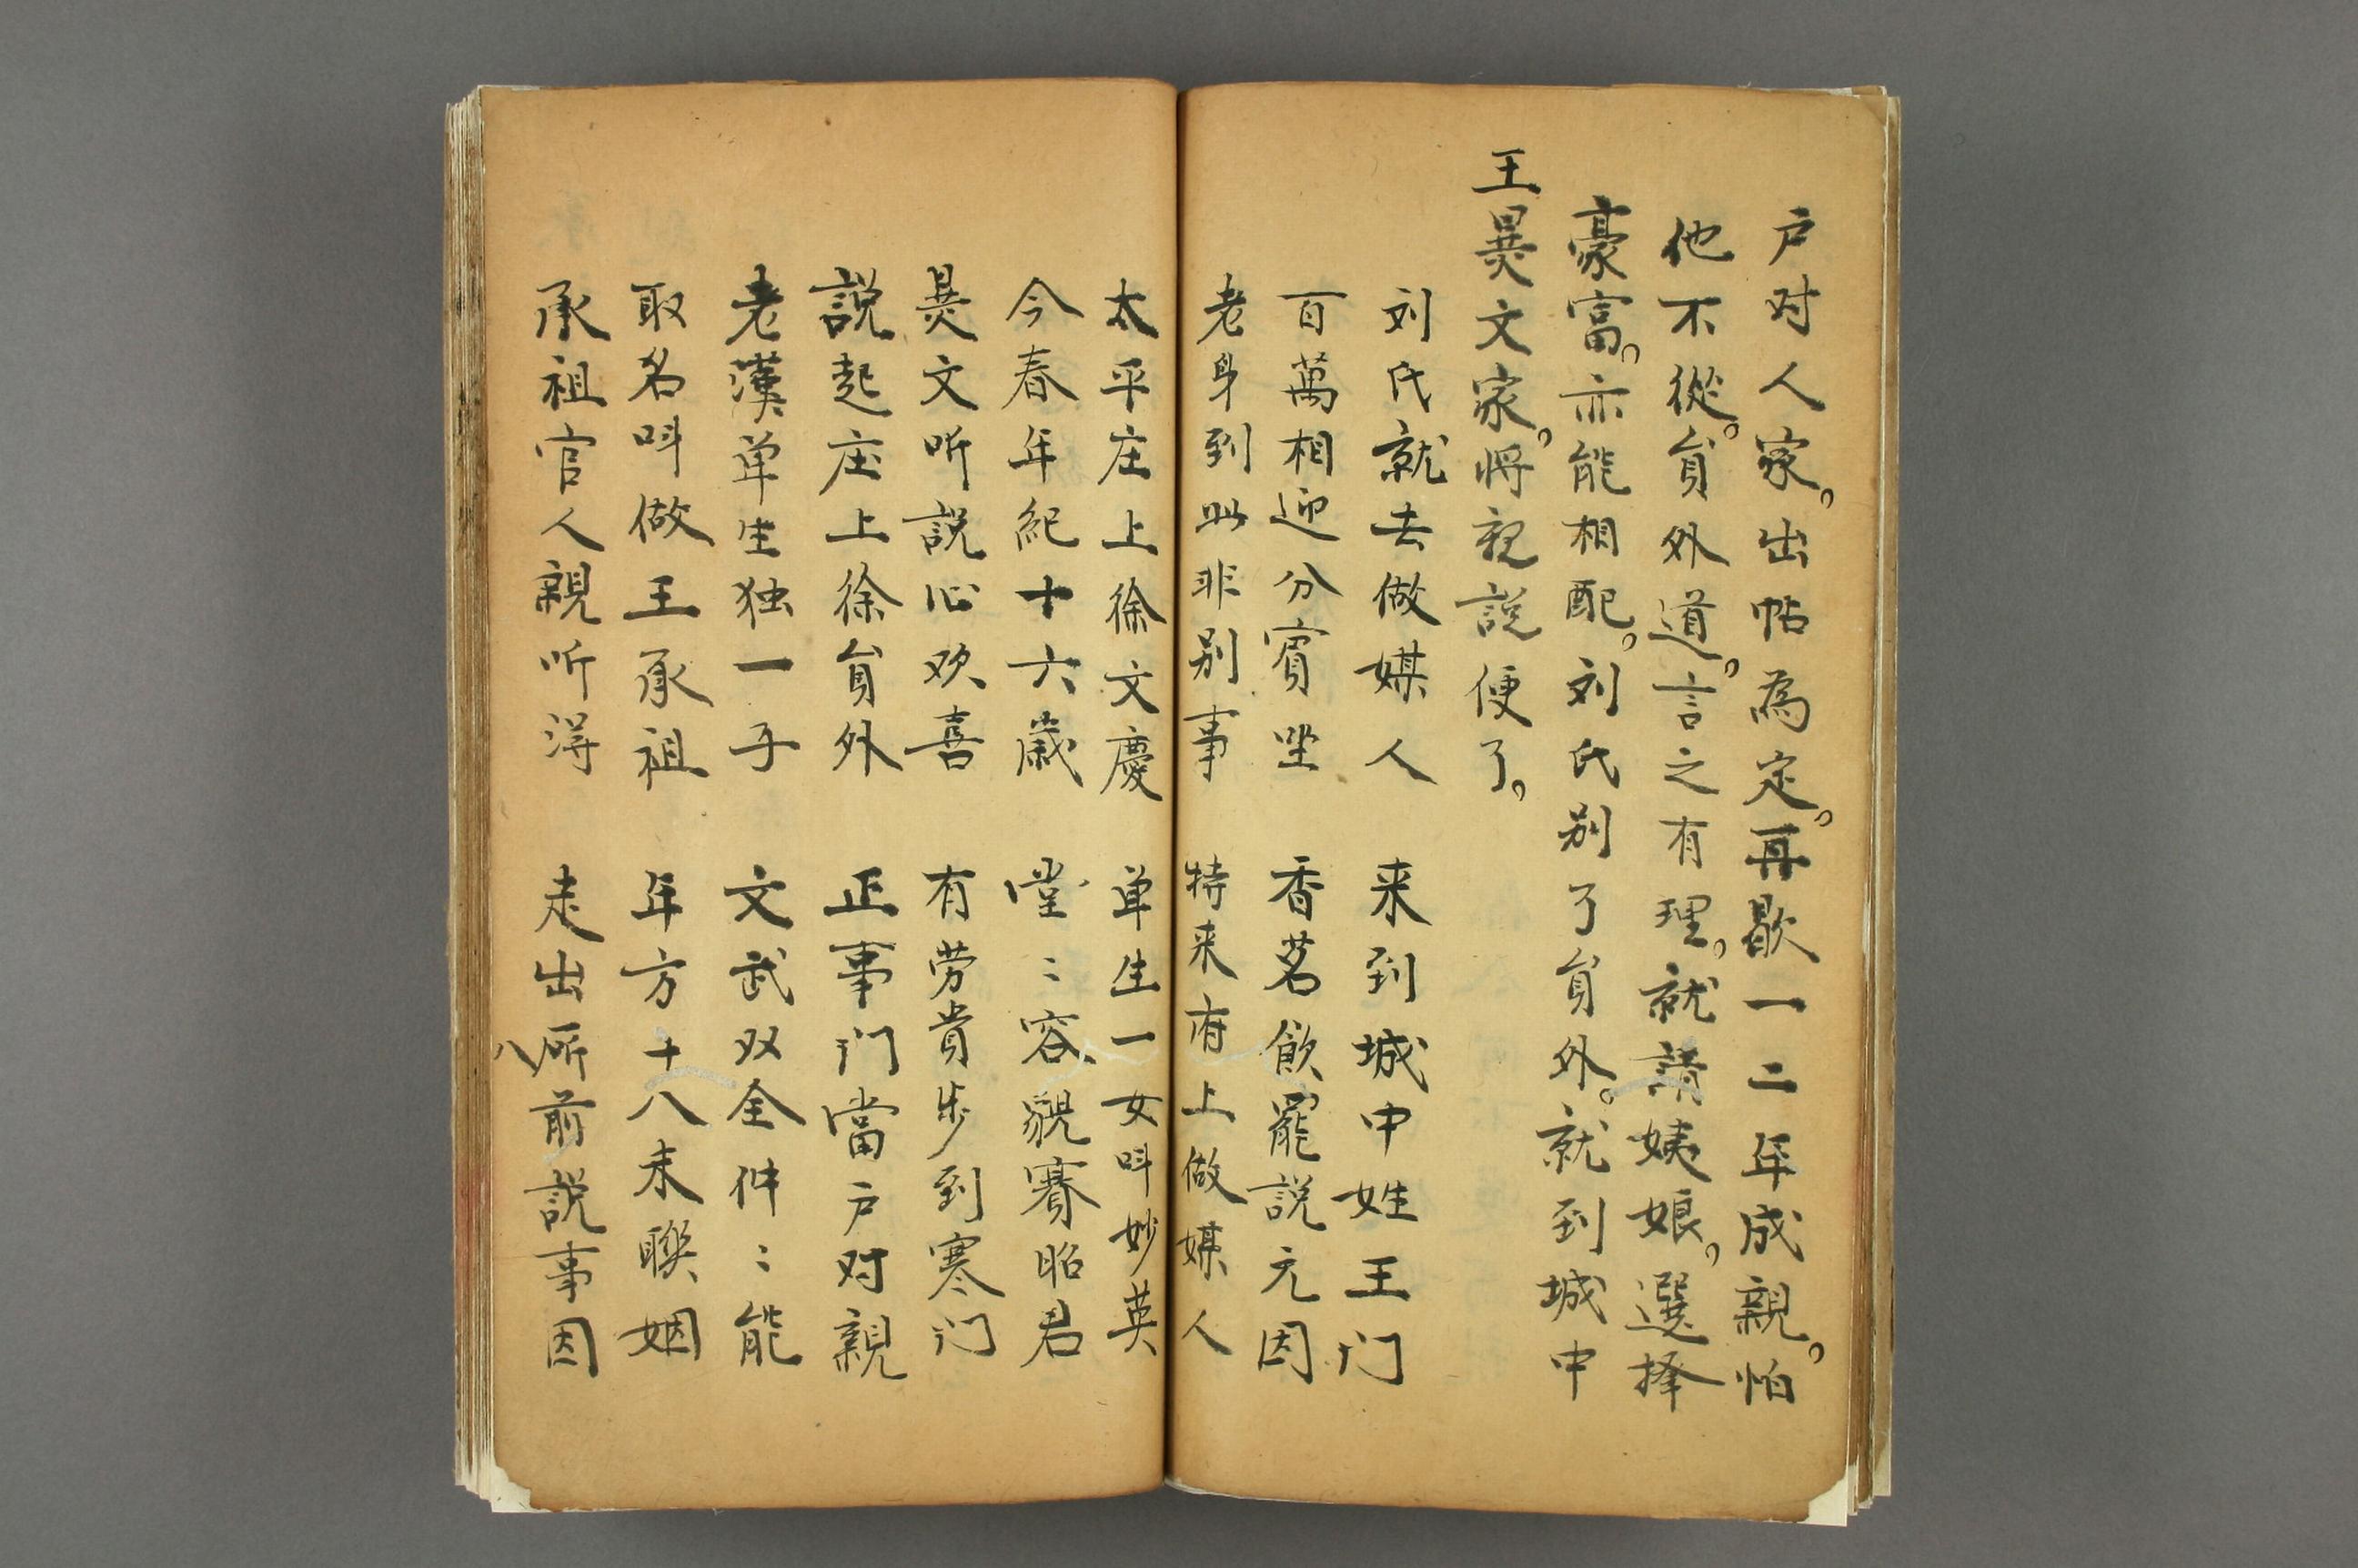 户对人家。出帖為定。再歇一二年成親。怕
他不從。員外道。言之有理。就請姨娘。選择
豪富。亦能相配。刘氏别了員外。就到城中
王㬌文家。将親説便了。
刘氏就去做媒人　来到城中姓王门
百萬相迎分賓坐　香茗飲罷説元因
老身到此非别事　特来府上做媒人
太平庄上徐文慶　单生一女呌妙英
今春年纪十六歲　堂〻容貌賽昭君
㬌文听説心欢喜　有劳貴步到寒门
説起庄上徐員外　正事门當户对親
老漢单生独一子　文武双全件〻能
取名呌做王承祖　年方十八未聯姻
承祖官人親听得　走出所前説事因
八